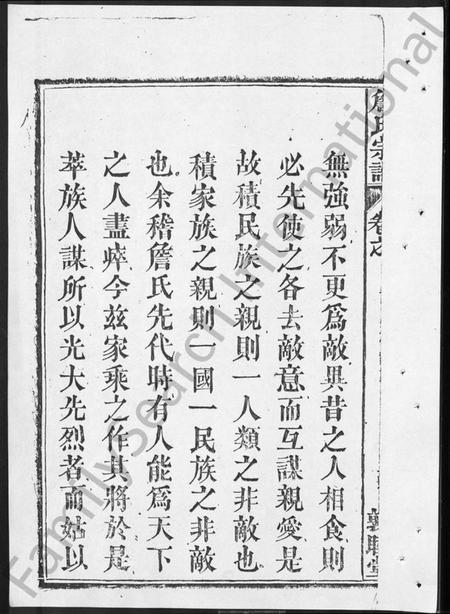 無強弱不更為敵異昔之人相食則
必先使之各去敵意而互謀親愛是
故積民族之親則一人類之非敵也
積家族之親則一國一民族之非敵
也余稽詹氏先代時有人能為天下
之人盡瘁今茲家乘之作其將於是
萃族人謀所以光大先烈者而姑以
詹氏宗譜
卷之
FamilySearch International